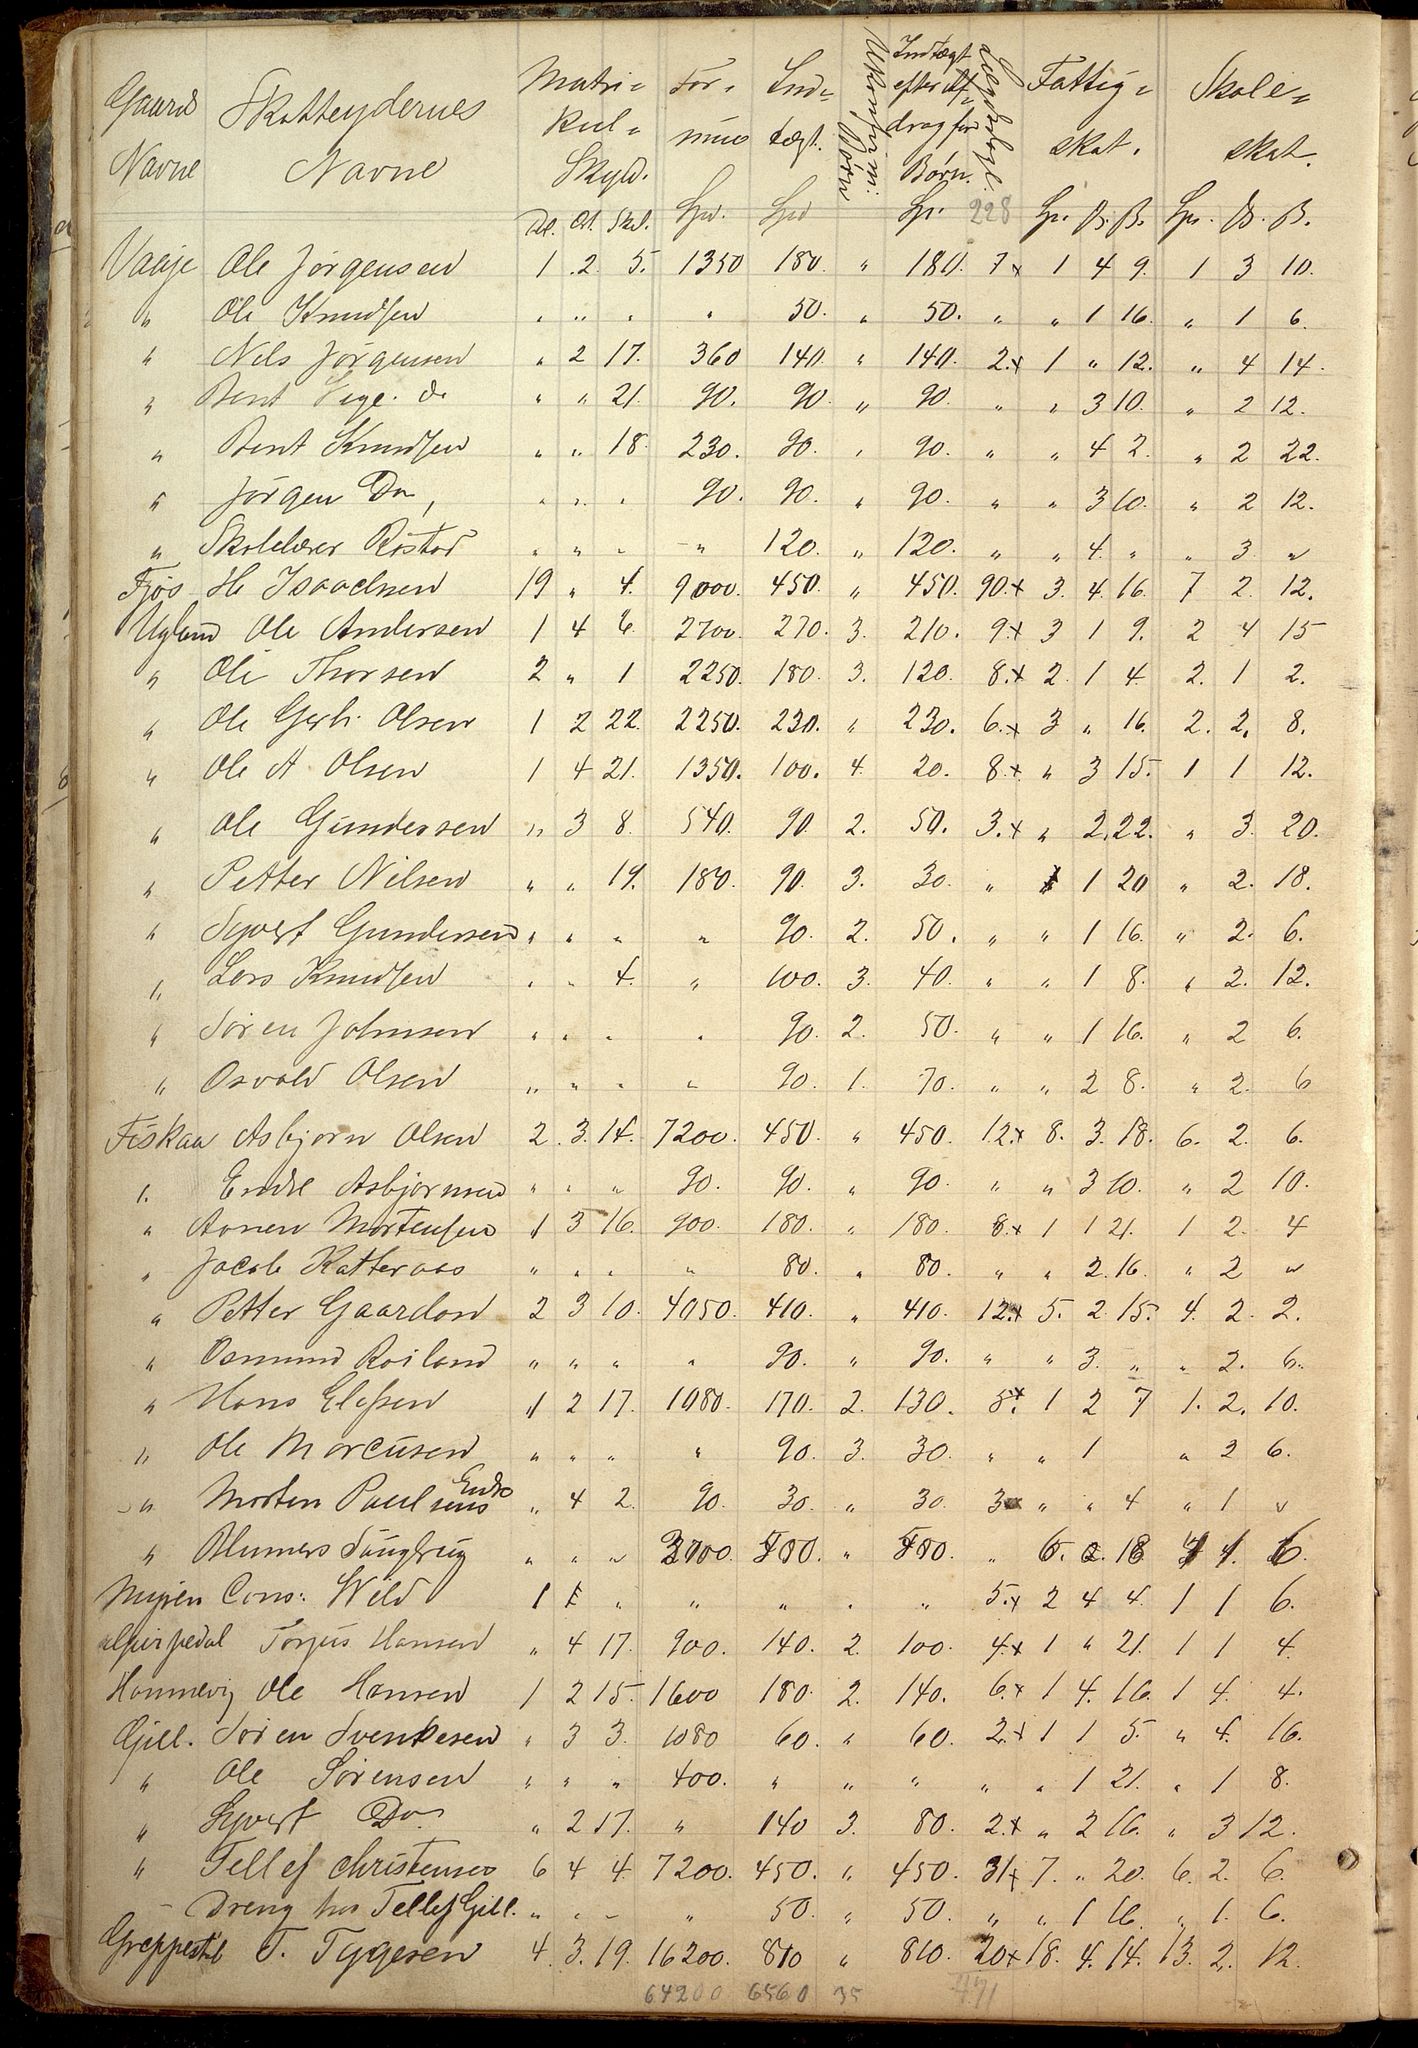 Gaards Navne | Skatteydernes Navne | Matri= kul= Skyld. | For= mue | Ind= tægt. | Ukonfirm: Børn | Indtægt efter Af= drag for Børn. | Fattig= skat. | Skole= skat.
Dl. Ort. Skil. | Spd. | Spd | Sp. | 228 | Sp. Ort. ß. | Sp. Ort. ß.
Vaaje Ole Jørgensen 1 . 2 5. 1350 180. " 180. 7x 1 4 9. 1 3 10.
" Ole Knudsen " " " " 50. " 50. " " 1 16. " 1 6.
" Nils Jørgensen " 2 17. 360 140. " 140. 2.x 1 " 12. " 4 14.
" Bent Do " " 21. 90. 90. " 90. " " 3 10. " 2 12.
" Bent Knudsen " " 18. 230. 90. " 90. " " 4 2. " 2 22.
" Jørgen Do, " " " 90. 90. " 90. " " 3 10. " 2 12.
" Skolelærer Røstad " " " " 120. " 120. " " 4. " " 3. "
Fjøs H Isaachsen 19 " 4. 9000. 450. " 450. 90.x 3. 4. 16. 7 2. 12.
Ugland Ole Andersen 1 4 6. 2700. 270. 3. 210. 9.x 3 1 9. 2 4 15
" Ole Thorsen 2 " 1 2250. 180. 3. 120. 8.x 2. 1 4. 2. 1 2.
" Ole Gerh. Olsen 1 2 22. 2250. 230. " 230. 6.x 3 " 16. 2. 2. 8.
" Ole A Olsen 1 4 21. 1350. 100. 4. 20. 8.x " 3 15. 1 1 12.
" Ole Gundersen " 3 8. 540. 90. 2. 50. 3.x " 2. 22. " 3. 20.
" Petter Nilsen " " 19. 180. 90. 3. 30. " 1 20 " 2. 18.
" Syvert Gundersen " " " " 90. 2. 50. " " 1 16. " 2. 6.
" Lars Knudsen " " 4. " 100. 3. 40. " " 1 8. " 2. 12.
" Søren Johnsen " " " " 90. 2. 50. " " 1 16. " 2 6.
" Osvald Olsen " " " " 90. 1. 70. " " 2 8. " 2. 6
Fiskaa Asbjørn Olsen 2 . 3. 14. 7200. 450. " 450. 12.x 8. 3. 18. 6. 2. 6.
" Endre Asbjørnsen " " " 90. 90. " 90. " " 3 10. " 2 10.
" Aanen Mortensen 1 3 16. 900. 180. " 180. 8.x 1 1 21. 1 2. 4
" Jacob Katteraas " " " " 80. " 80. " " 2. 16. " 2 "
" Petter Gaardon 2 3 10. 4050. 410. " 410. 12.x 5. 2 15. 4. 2. 2.
" Osmund Roiland " " " " 90. " 90. " " 3. " " 2. 6.
" Hans Elefsen 1 2 17. 1080. 170. 2. 130. 5x. 1 2 7 1. 2. 10.
" Ole Marcusen " " " " 90. 3. 30. " " 1 " 2 6.
" Morten Paulsens Enke " 4 2. 90. 30. " 30. 3x " " 4 " 1 "
" " " " " " 1. 6.
Cons: Wild 1 " " " " " 5.x 2 4 4. 1 1 6.
Torjus Hansen " 4 17. 900. 140. 2. 100. 4.x 1 " 21. 1 1 4.
Hannevig Ole Hansen 1 2 15. 1600 180. 2. 140. 6.x 1 4. 16. 1 4. 4.
Gill. Søren Svenkesen " 3 3. 1080 60. " 60. 2.x 1 1 5. " 4. 16.
" Ole Sørensen " " " 400. " " " " " 1 21. " 1 8.
" Syvert Do " 2 17. " 140 3. 80. 2.x " 2 16. " 3 12.
" Tellef Christensen 6 4 4. 7200. 450. " 450. 31x 7. " 20. 6. 2. 6.
- Dreng hos Tellef Gill. " " " " 50. " 50. " " 1 16. " 1. 6.
Greppestøl T. Tygesen 4. 3. 19. 16200. 810 " 810. 20x 18. 4. 14. 13. 2. 12.
64200 6560 35 471